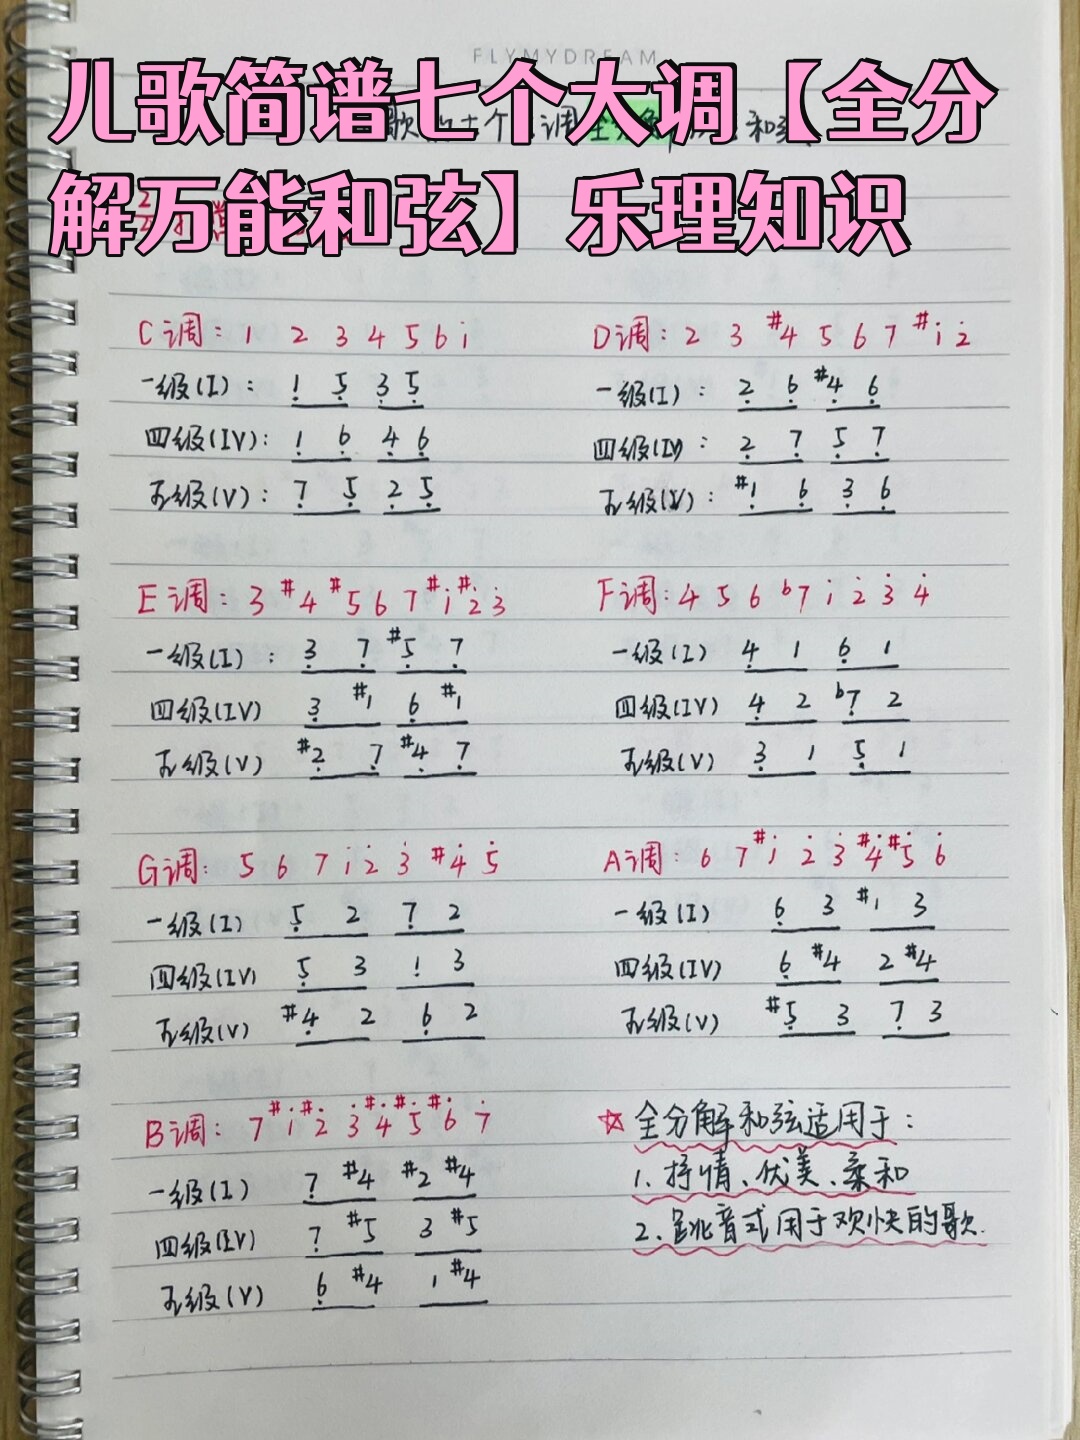 FLYMYDREAM
儿歌简谱七个大调【全分
解万能和弦】乐理知识
C调: 1 2 3 4 5 6 i
一级(I): 1̣ 5̣ 3̣ 5̣
四级(IV): 1̣ 6̣ 4̣ 6̣
五级(V): 7̣ 5̣ 2̣ 5̣
D调: 2 3 #4 5 6 7 #i 2̇
一级(I): 2̣ 6̣ #4̣ 6̣
四级(IV): 2̣ 7̣ 5̣ 7̣
五级(V): #1̣ 6̣ 3̣ 6̣
E调: 3 #4 #5 6 7 #i #2̇ 3̇
一级(I): 3̣ 7̣ #5̣ 7̣
四级(IV) 3̣ #1 6̣ #1
五级(V) #2̣ 7̣ #4̣ 7̣
F调: 4 5 6 b7 i 2̇ 3̇ 4̇
一级(I) 4̣ 1 6̣ 1
四级(IV) 4̣ 2 b7̣ 2
五级(V) 3̣ 1 5̣ 1
G调: 5 6 7 i 2̇ 3̇ #4̇ 5̇
一级(I) 5̣ 2 7̣ 2
四级(IV) 5̣ 3 1 3
五级(V) #4̣ 2 6̣ 2
A调: 6 7 #i 2̇ 3̇ #4̇ #5̇ 6̇
一级(I) 6̣ 3 #1 3
四级(IV) 6̣ #4 2 #4
五级(V) #5̣ 3 7̣ 3
B调: 7 #i #2̇ 3̇ #4̇ #5̇ #6̇ 7̇
一级(I) 7̣ #4 #2 #4
四级(IV) 7̣ #5 3 #5
五级(V) 6̣ #4 1 #4
☆全分解和弦适用于:
1.抒情、优美、柔和
2.跳音式用于欢快的歌.